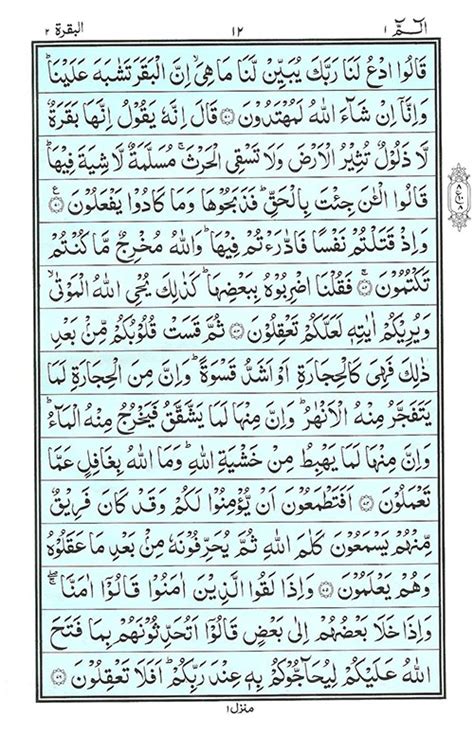 الٓـمّٓ ١
١٢
البقرة ٢
قَالُوا ادْعُ لَنَا رَبَّكَ يُبَيِّنْ لَّنَا مَا هِیَ ۙ اِنَّ الْبَقَرَ تَشٰبَهَ عَلَيْنَا ؕ
وَاِنَّاۤ اِنْ شَآءَ اللّٰهُ لَمُهْتَدُوْنَ ۞ قَالَ اِنَّهٗ يَقُوْلُ اِنَّهَا بَقَرَةٌ
لَّا ذَلُوْلٌ تُثِيْرُ الْاَرْضَ وَلَا تَسْقِى الْحَرْثَ ۚ مُسَلَّمَةٌ لَّا شِيَةَ فِيْهَا ؕ
قَالُوا الْـٰٔنَ جِئْتَ بِالْحَقِّ ؕ فَذَبَحُوْهَا وَمَا كَادُوْا يَفْعَلُوْنَ ۞ ع
وَاِذْ قَتَلْتُمْ نَفْسًا فَادّٰرَءْتُمْ فِيْهَا ؕ وَاللّٰهُ مُخْرِجٌ مَّا كُنْتُمْ
تَكْتُمُوْنَ ۞ فَقُلْنَا اضْرِبُوْهُ بِبَعْضِهَا ؕ كَذٰلِكَ يُحْىِ اللّٰهُ الْمَوْتٰى ۙ
وَيُرِيْكُمْ اٰيٰتِهٖ لَعَلَّكُمْ تَعْقِلُوْنَ ۞ ثُمَّ قَسَتْ قُلُوْبُكُمْ مِّنْۢ بَعْدِ
ذٰلِكَ فَهِىَ كَالْحِجَارَةِ اَوْ اَشَدُّ قَسْوَةً ؕ وَاِنَّ مِنَ الْحِجَارَةِ لَمَا
يَتَفَجَّرُ مِنْهُ الْاَنْهٰرُ ؕ وَاِنَّ مِنْهَا لَمَا يَشَّقَّقُ فَيَخْرُجُ مِنْهُ الْمَآءُ ؕ
وَاِنَّ مِنْهَا لَمَا يَهْبِطُ مِنْ خَشْيَةِ اللّٰهِ ؕ وَمَا اللّٰهُ بِغَافِلٍ عَمَّا
تَعْمَلُوْنَ ۞ اَفَتَطْمَعُوْنَ اَنْ يُّؤْمِنُوْا لَكُمْ وَقَدْ كَانَ فَرِيْقٌ
مِّنْهُمْ يَسْمَعُوْنَ كَلٰمَ اللّٰهِ ثُمَّ يُحَرِّفُوْنَهٗ مِنْۢ بَعْدِ مَا عَقَلُوْهُ
وَهُمْ يَعْلَمُوْنَ ۞ وَاِذَا لَقُوا الَّذِيْنَ اٰمَنُوْا قَالُوْۤا اٰمَنَّا ۖ
وَاِذَا خَلَا بَعْضُهُمْ اِلٰى بَعْضٍ قَالُوْۤا اَتُحَدِّثُوْنَهُمْ بِمَا فَتَحَ
اللّٰهُ عَلَيْكُمْ لِيُحَآجُّوْكُمْ بِهٖ عِنْدَ رَبِّكُمْ ؕ اَفَلَا تَعْقِلُوْنَ ۞
منزل ١